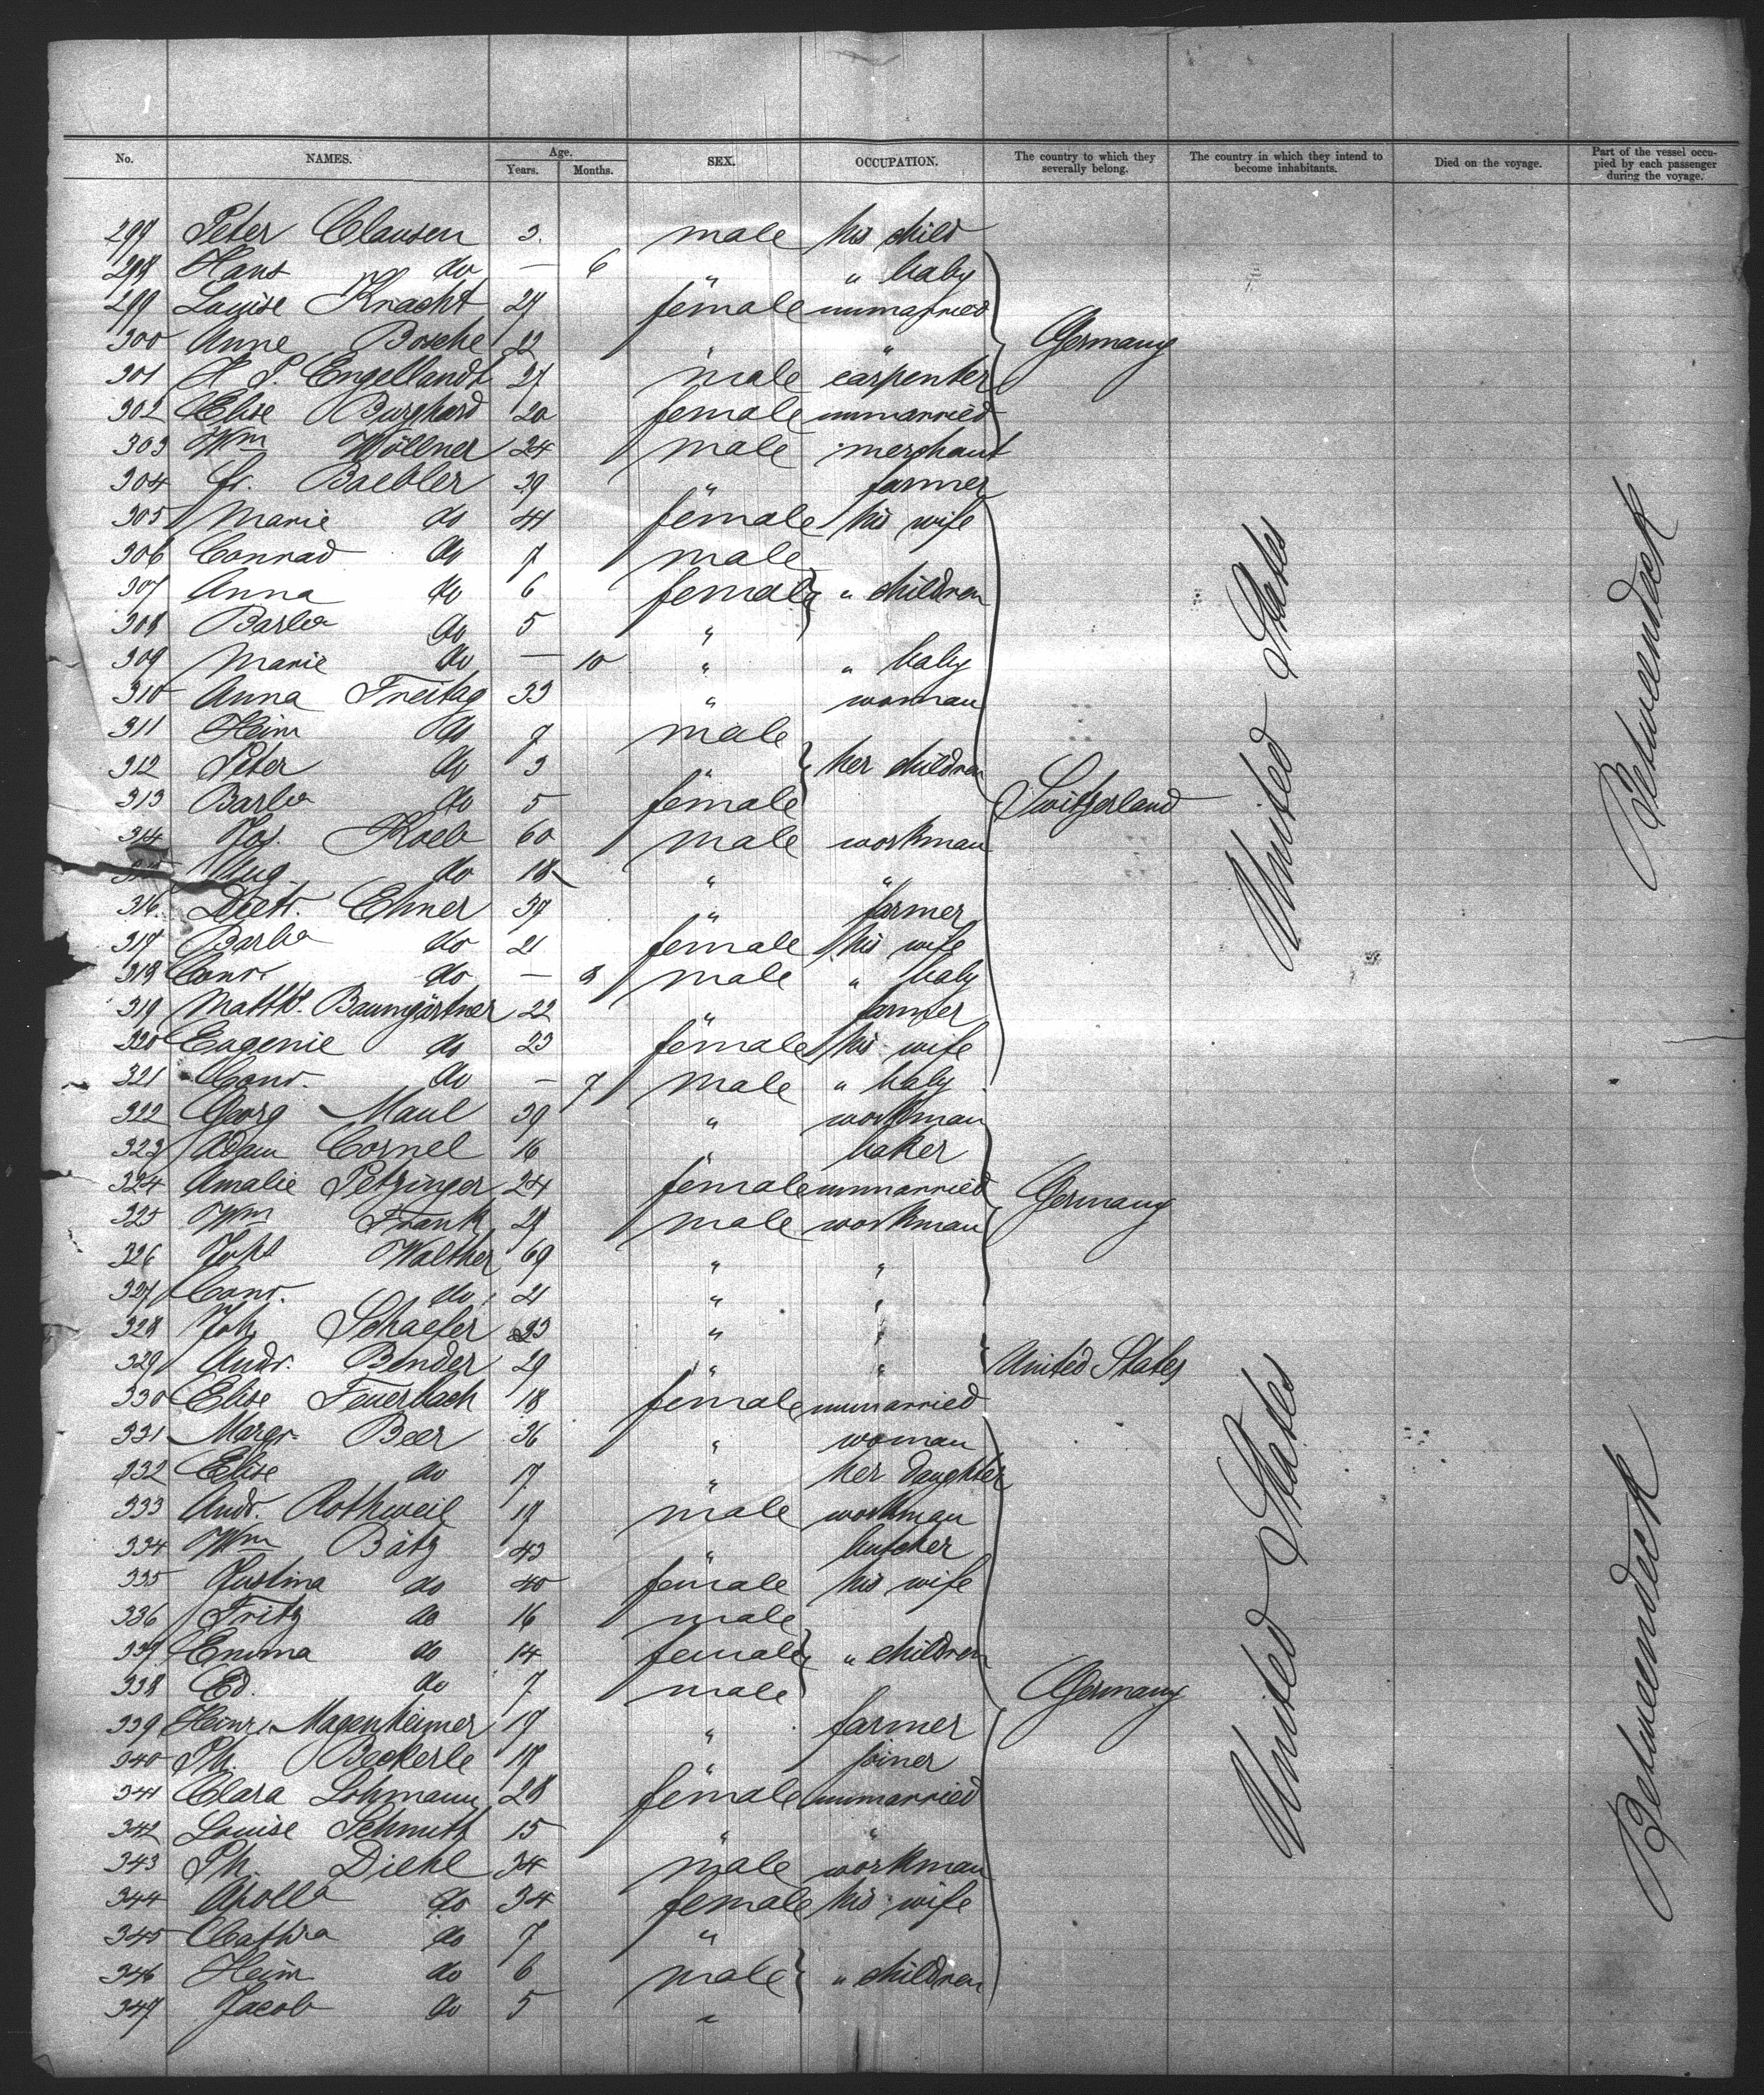 No. NAMES. Age. Years. Months. SEX. OCCUPATION. The country to which they severally belong. The country in which they intend to become inhabitants. Died on the voyage. Part of the vessel occupied by each passenger during the voyage.
297 Peter Clausen 3 male his child
298 Hans do — 6 " " baby
299 Louise Kracht 27 female unmarried
300 Anne Bosche 22 " " Germany
301 H P. Engellandt 27 male carpenter
302 Elise Burghard 20 female unmarried
303 Wm Wöllner 24 male merchant
304 Fr. Baebler 39 " farmer
305 Marie do 41 female his wife
306 Conrad do 7 male
307 Anna do 6 female " children
308 Barba do 5 "
309 Marie do — 10 " " baby
310 Anna Freitag 33 " woman
311 Heinr do 7 male
312 Peter do 3 " her children
313 Barba do 5 female Switzerland
314 Jos. Koeb 60 male workman
315 Aug do 18 " "
316 Dietr. Ehner 37 " farmer
317 Barba do 21 female his wife
318 Conr. do — 8 male " baby
319 Matth. Baumgärtner 22 " farmer
320 Eugenie do 23 female his wife
321 Conr. do — 7 male " baby
322 Georg Maul 39 " workman
323 Adam Cornel 16 " baker
324 Amalie Petzinger 24 female unmarried Germany
325 Wm Frank 29 male workman
326 Johs Walther 69 " "
327 Conr. do 21 " "
328 Joh. Schaefer 23 " "
329 Andr. Bender 29 " " United States
330 Elise Feuerbach 18 female unmarried
331 Margr. Beer 36 " woman
332 Elise do 17 " her daughter
333 Andr. Rothweil 19 male workman
334 Wm Bätz 43 " butcher
335 Justina do 40 female his wife
336 Fritz do 16 male
337 Emma do 14 female " children
338 Ed. do 7 male Germany
339 Heinr. Magenheimer 19 " farmer
340 Ph. Beckerle 17 " joiner
341 Clara Lohmann 28 female unmarried
342 Louise Schmitt 15 " "
343 Ph. Diehl 34 male workman
344 Apolla do 34 female his wife
345 Cathra do 7 "
346 Heinr do 6 male " children
347 Jacob do 5 "
United States
United States
Betweendeck
Betweendeck